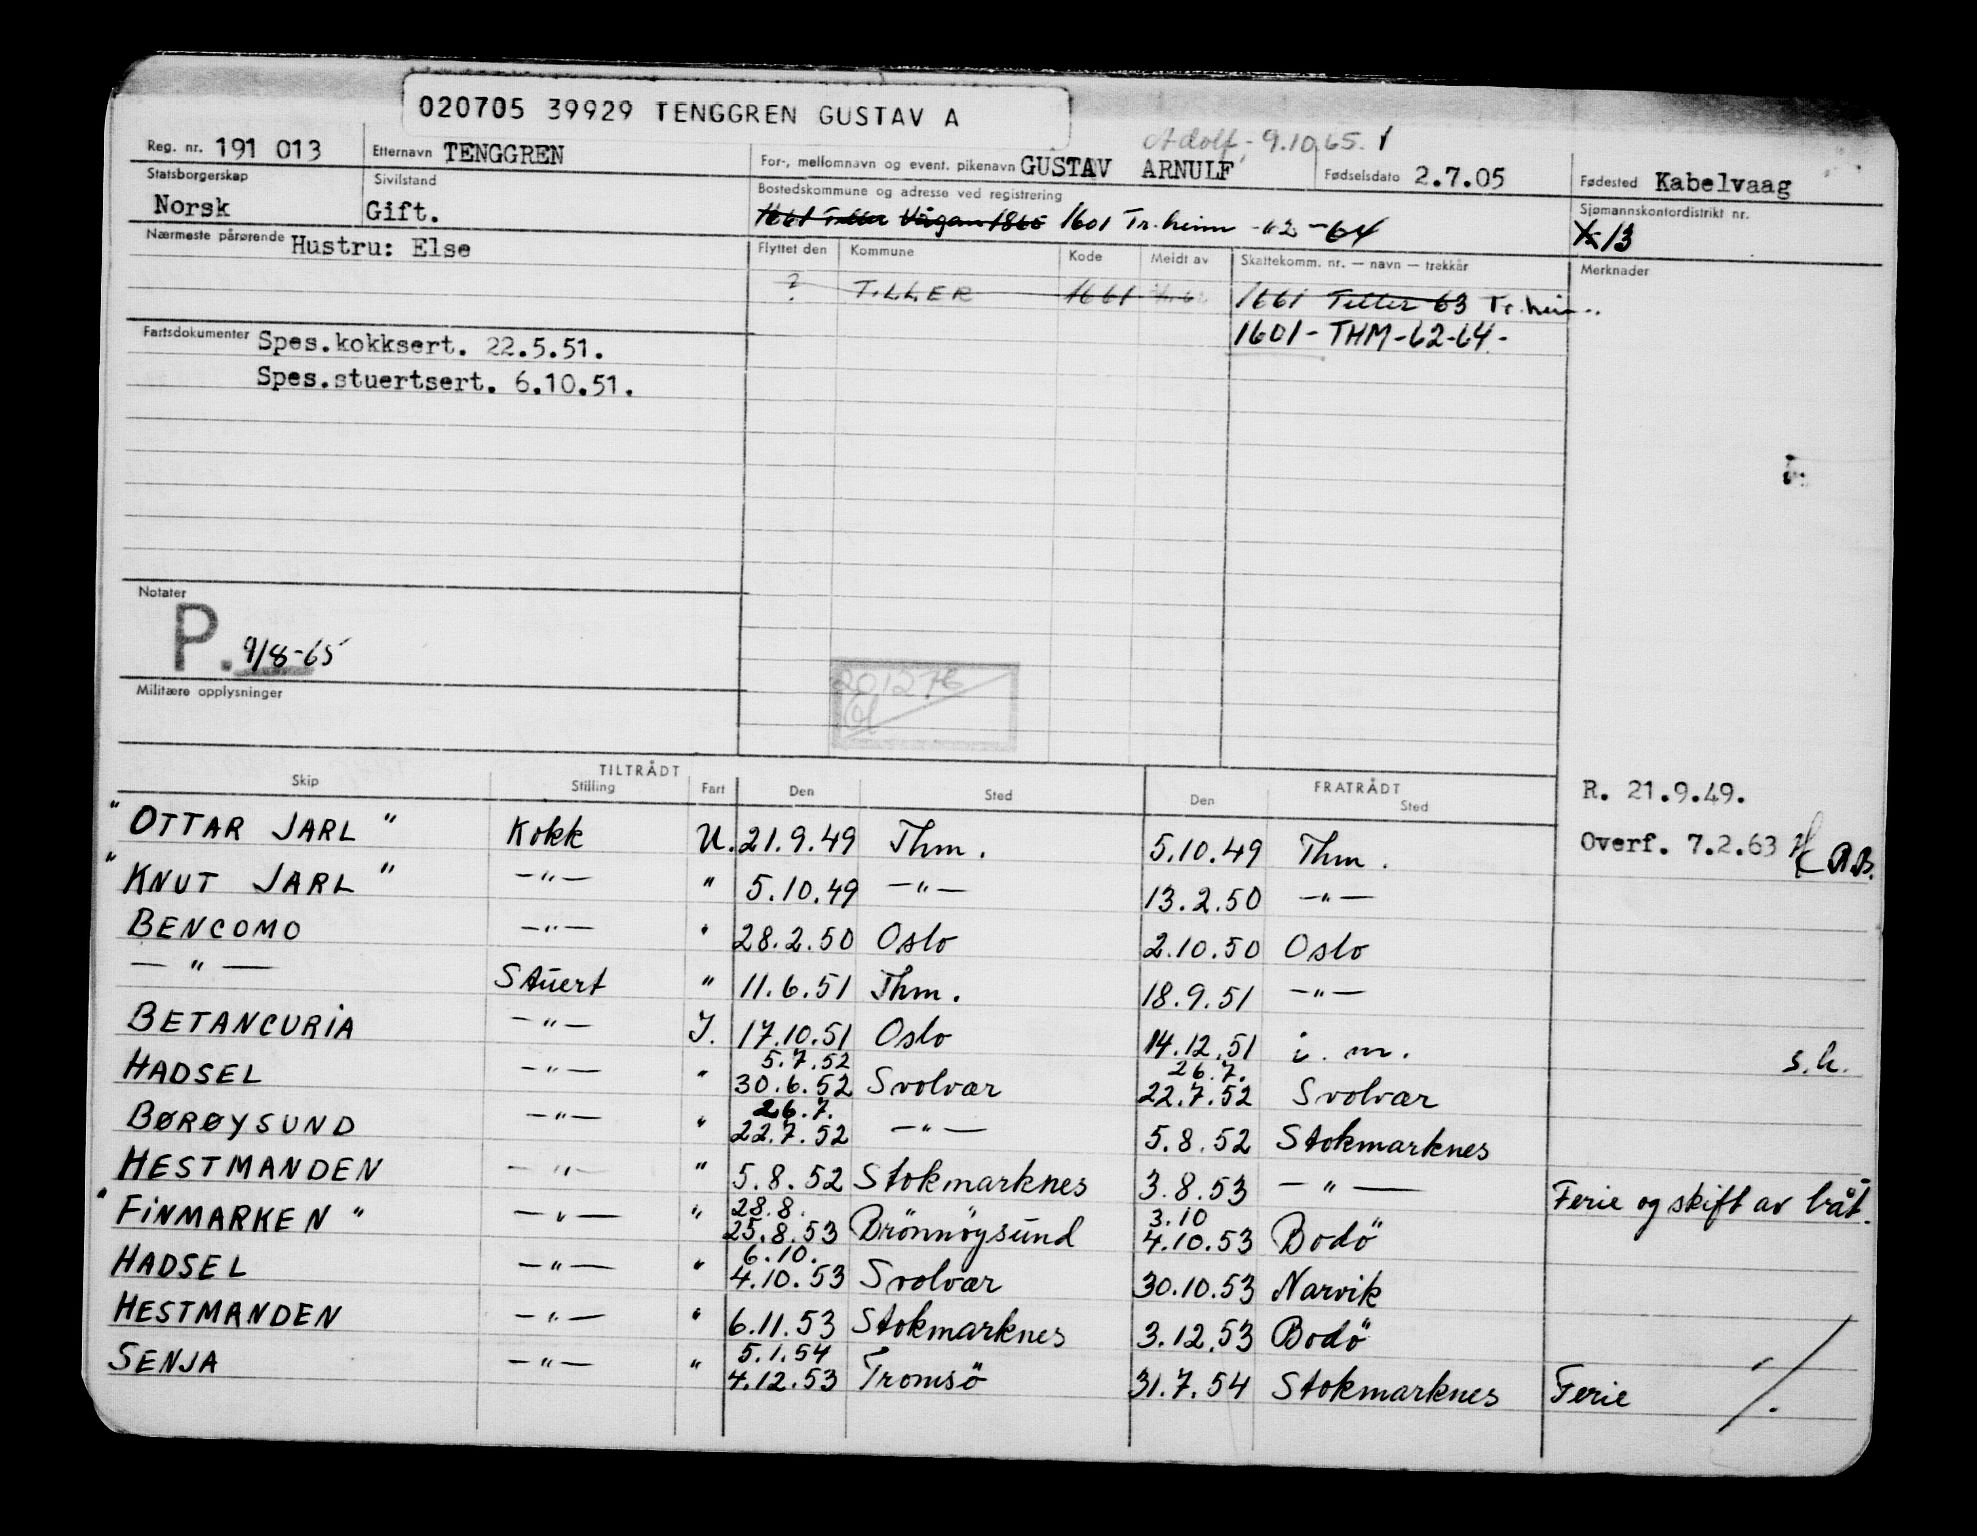 020705 39929 TENGGREN GUSTAV A
Adolf - 9.10.65.
Reg. nr. 191 013 Etternavn TENGGREN For-, mellomnavn og event. pikenavn GUSTAV ARNULF Fødselsdato 2.7.05 Fødested Kabelvaag
Statsborgerskap Norsk Sivilstand Gift. Bostedskommune og adresse ved registrering Sjømannskontordistrikt nr.
1661 Tiller Vågan 1865 1601 Tr.heim -62-64 13
Nærmeste pårørende Hustru: Else Flyttet den Kommune Kode Meldt av Skattekomm. nr. — navn — trekkår Merknader
? TILLER 1661 1661 Tiller 63 Tr.heim
1601 - THM - 62-64 -
Fartsdokumenter Spes.kokksert. 22.5.51.
Spes.stuertsert. 6.10.51.
Notater
P. 9/8-65
Militære opplysninger
201276
TILTRÅDT FRATRÅDT
Skip Stilling Fart Den Sted Den Sted
R. 21.9.49.
"OTTAR JARL" Kokk U. 21.9.49 Thm. 5.10.49 Thm. Overf. 7.2.63 A.B.
"KNUT JARL" —"— " 5.10.49 —"— 13.2.50 —"—
BENCOMO —"— " 28.2.50 Oslo 2.10.50 Oslo
—"— Stuert " 11.6.51 Thm. 18.9.51 —"—
BETANCURIA —"— I. 17.10.51 Oslo 14.12.51 i. m. s.h.
5.7.52 26.7.
HADSEL —"— " 30.6.52 Svolvær 22.7.52 Svolvær
26.7.
BØRØYSUND —"— " 22.7.52 —"— 5.8.52 Stokmarknes
HESTMANDEN —"— " 5.8.52 Stokmarknes 3.8.53 —"— Ferie og skift av båt.
28.8. 3.10
"FINMARKEN" —"— " 25.8.53 Brönnöysund 4.10.53 Bodö
6.10.
HADSEL —"— " 4.10.53 Svolvær 30.10.53 Narvik
HESTMANDEN —"— " 6.11.53 Stokmarknes 3.12.53 Bodö
5.1.54
SENJA —"— " 4.12.53 Tromsö 31.7.54 Stokmarknes Ferie ./.